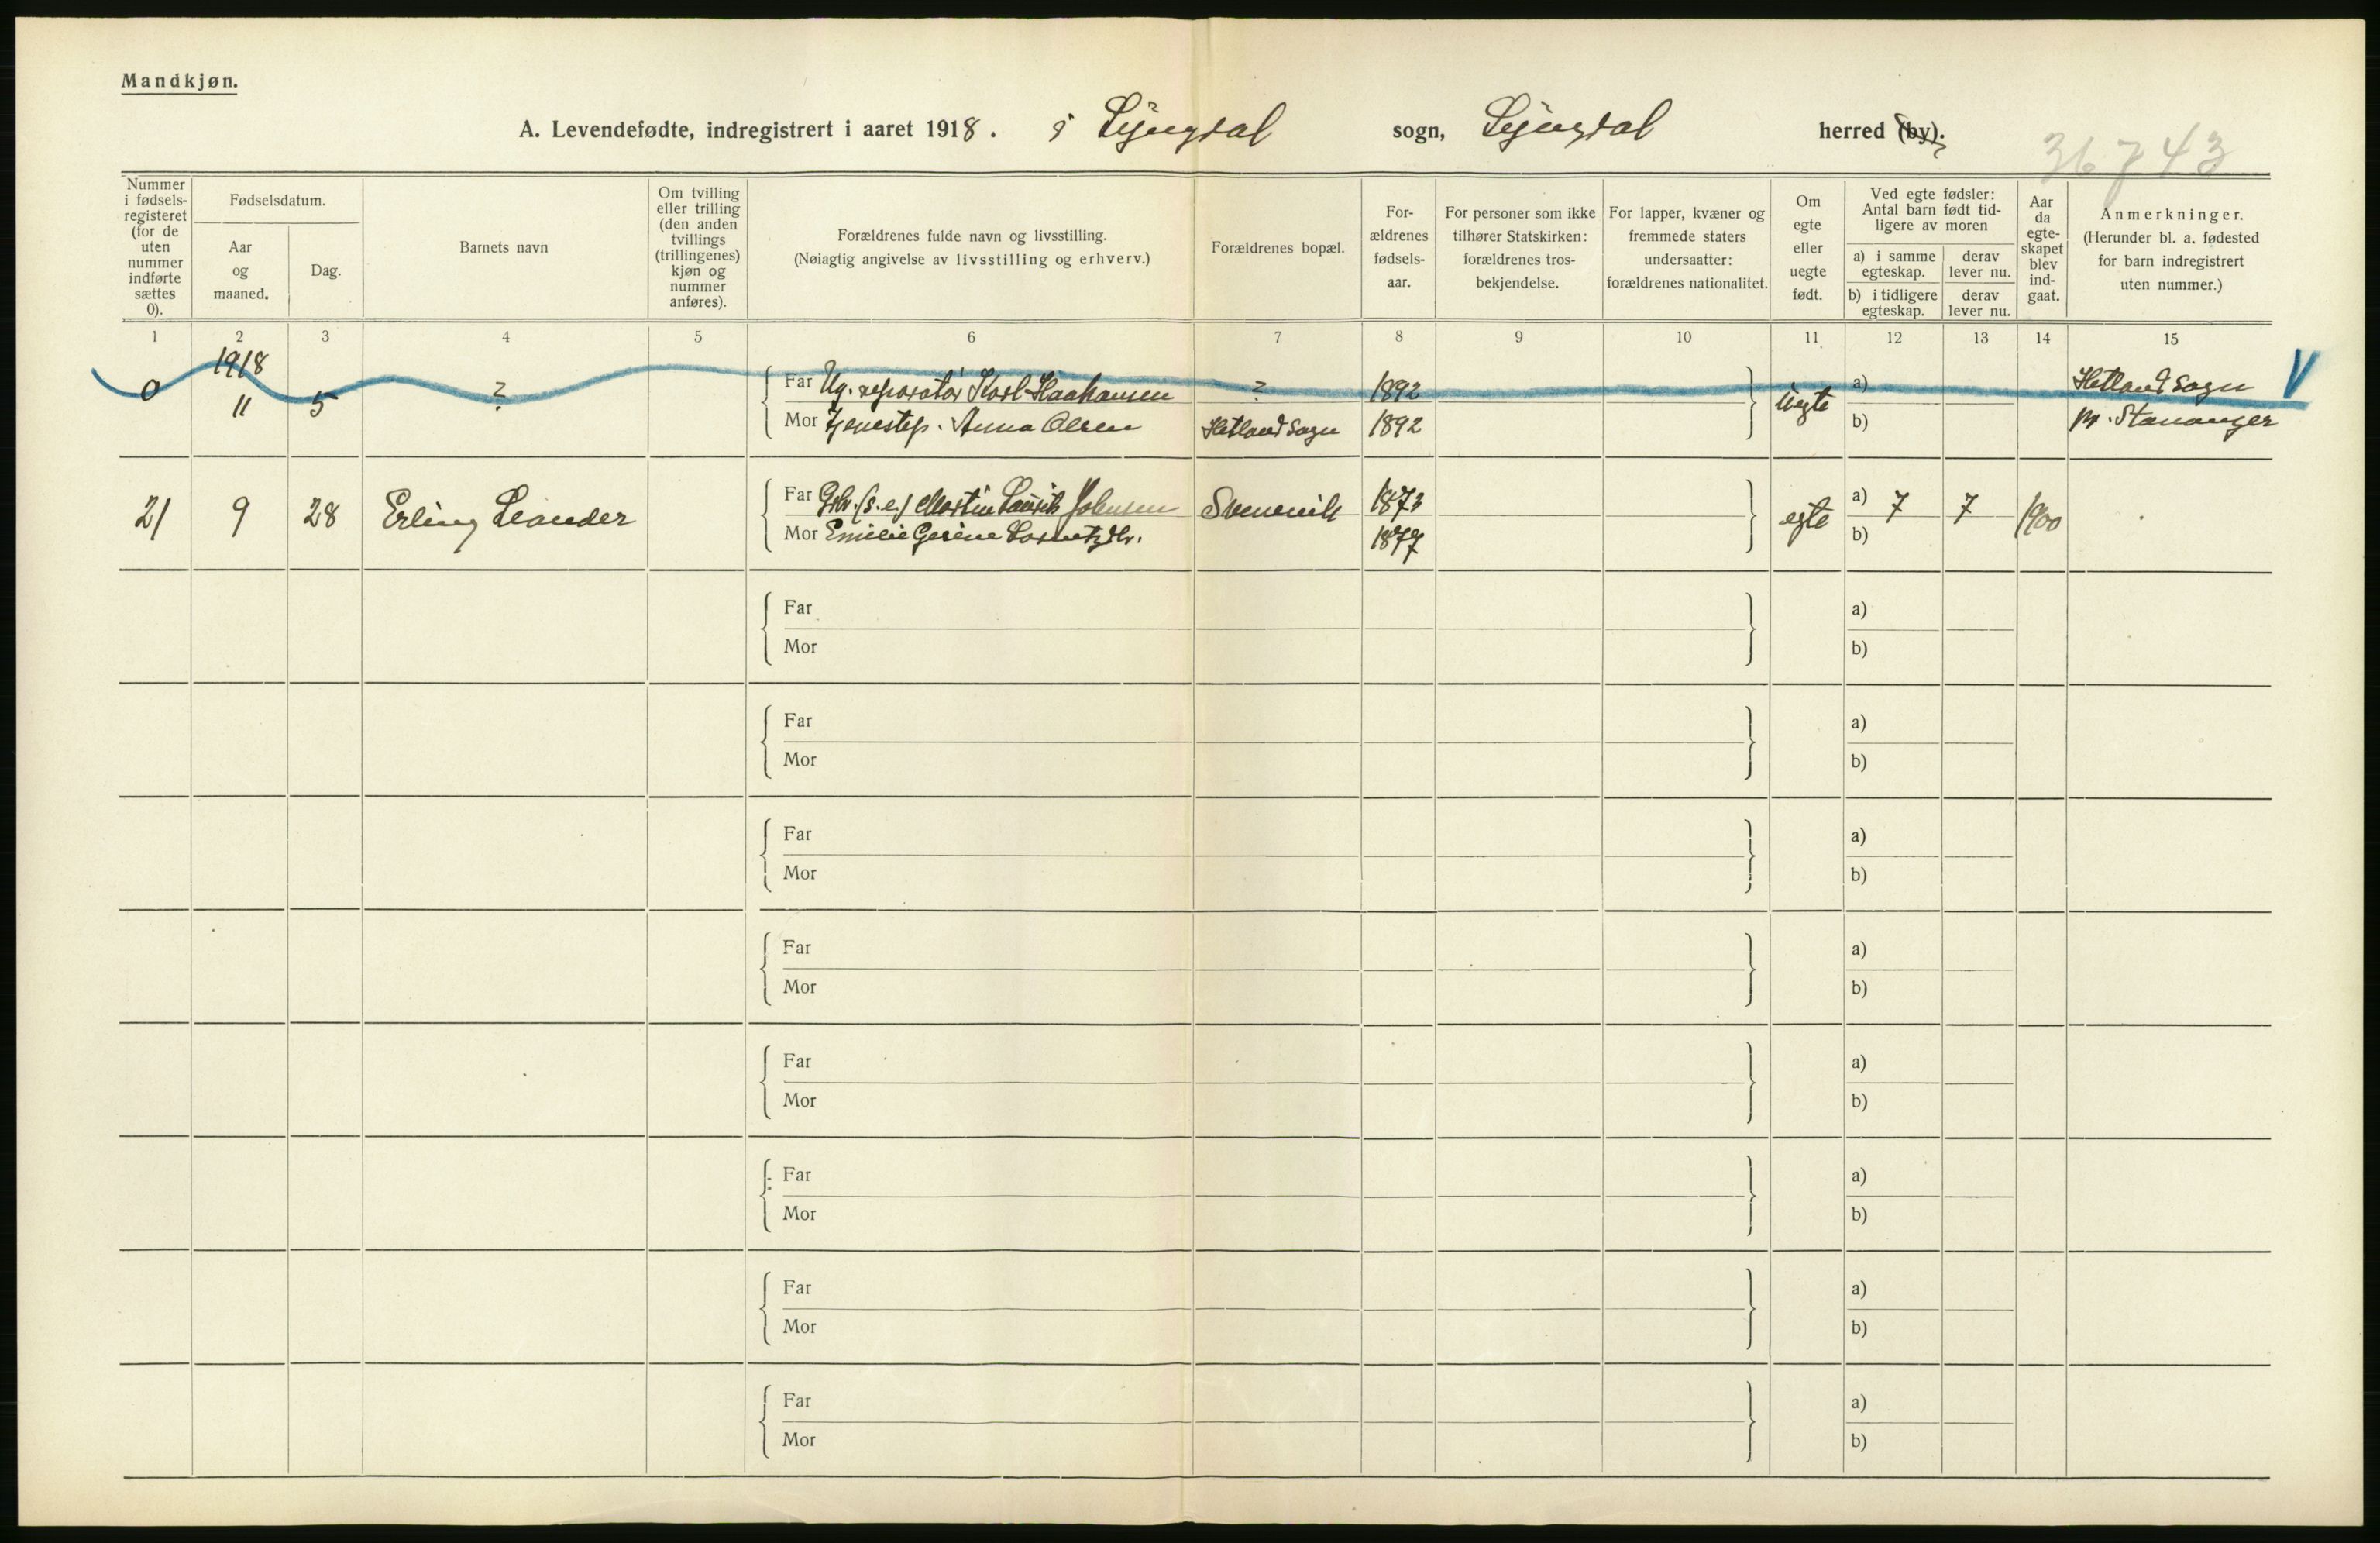 Mandkjøn.
A. Levendefødte, indregistrert i aaret 1918. i Lyngdal sogn, Lyngdal herred (by).
36743
Nummer i fødsels-registeret (for de uten nummer indførte sættes 0).
Fødselsdatum.
Aar og maaned.
Dag.
Barnets navn
Om tvilling eller trilling (den anden tvillings (trillingenes) kjøn og nummer anføres).
Forældrenes fulde navn og livsstilling.
(Nøiagtig angivelse av livsstilling og erhverv.)
Forældrenes bopæl.
For-ældrenes fødsels-aar.
For personer som ikke tilhører Statskirken: forældrenes tros-bekjendelse.
For lapper, kvæner og fremmede staters undersaatter: forældrenes nationalitet.
Om egte eller uegte født.
Ved egte fødsler: Antal barn født tid-ligere av moren
a) i samme egteskap.
derav lever nu.
b) i tidligere egteskap.
derav lever nu.
Aar da egte-skapet blev ind-gaat.
Anmerkninger.
(Herunder bl. a. fødested for barn indregistrert uten nummer.)
1 2 3 4 5 6 7 8 9 10 11. 12 13 14 15
1918
0 11 5 ? Far Ug. reparatør Karl Haahansen ? 1892 uegte a) Hetland sogn V
Mor Tjenestep. Anna Olsen Hetland sogn 1892 b) pr. Stavanger
21 9 28 Erling Leander Far Grbr. (s.e.) Martin Laurits Johnsen Svennevik 1873 egte a) 7 7 1900
Mor Emilie Gesine 1877 b)
Far a)
Mor b)
Far a)
Mor b)
Far a)
Mor b)
Far a)
Mor b)
Far a)
Mor b)
Far a)
Mor b)
Far a)
Mor b)
Far a)
Mor b)